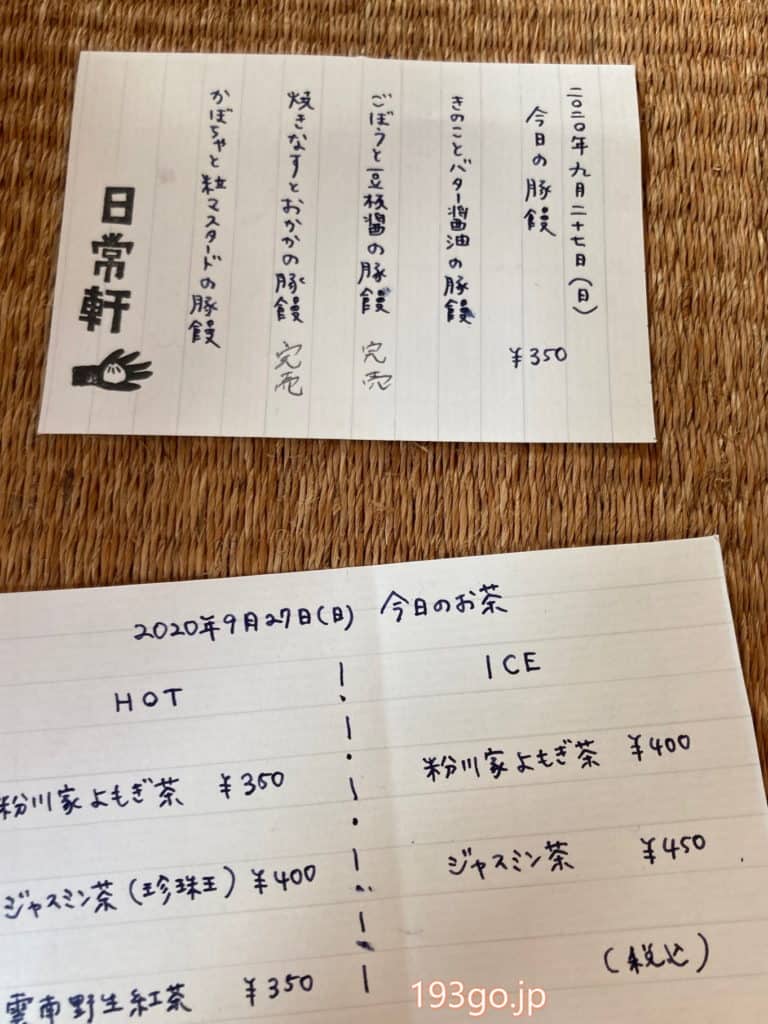 二〇二〇年九月二十七日(日)
今日の豚饅 ¥350
きのことバター醤油の豚饅
ごぼうと豆板醤の豚饅 完売
焼きなすとおかかの豚饅 完売
かぼちゃと粒マスタードの豚饅
日常軒
2020年9月27日(日) 今日のお茶
HOT
粉川家よもぎ茶 ¥350
ジャスミン茶(珍珠王) ¥400
雲南野生紅茶 ¥350
ICE
粉川家よもぎ茶 ¥400
ジャスミン茶 ¥450
(税込)
193go.jp